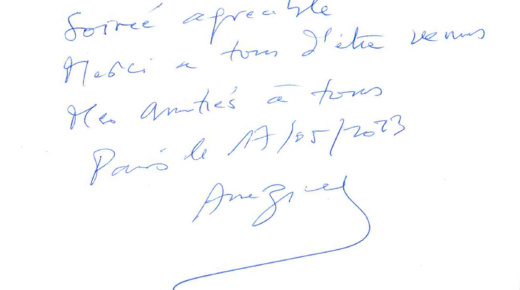 Soirée agréable
Merci a tous d'être venus
Mes amitiés à tous
Paris le 17/05/2023